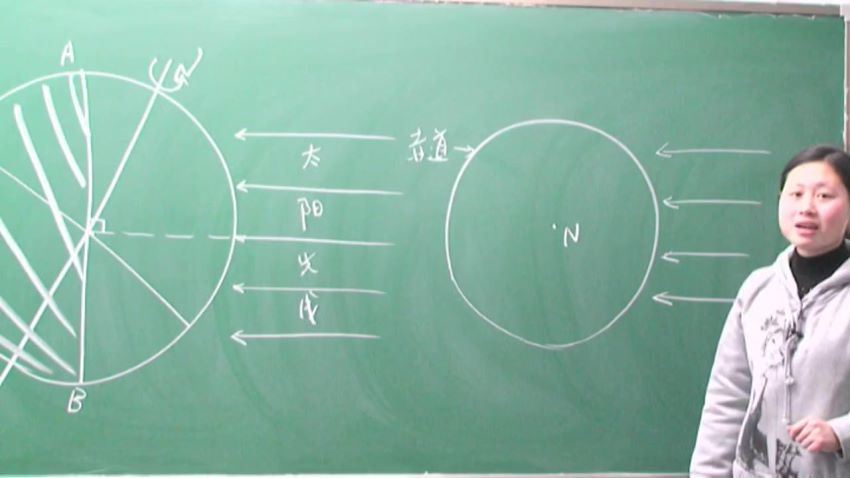 A
N
太
阳
光
线
赤道
N
B